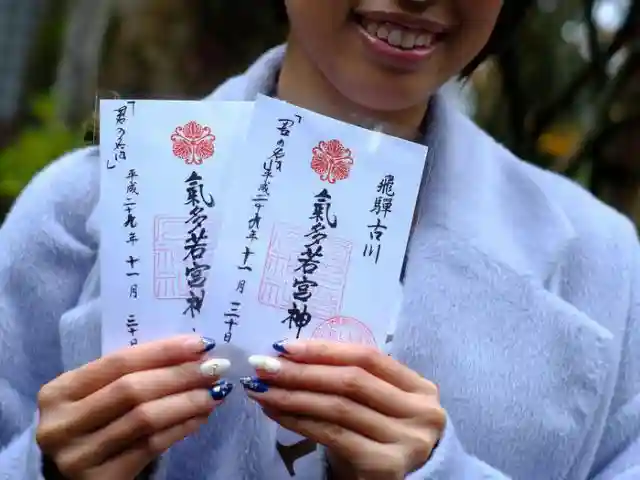 飛騨古川
氣多若宮神
「君の名は
平成二十九年十一月三十日
氣多若宮神
「君の名は」
平成二十九年十一月三十日